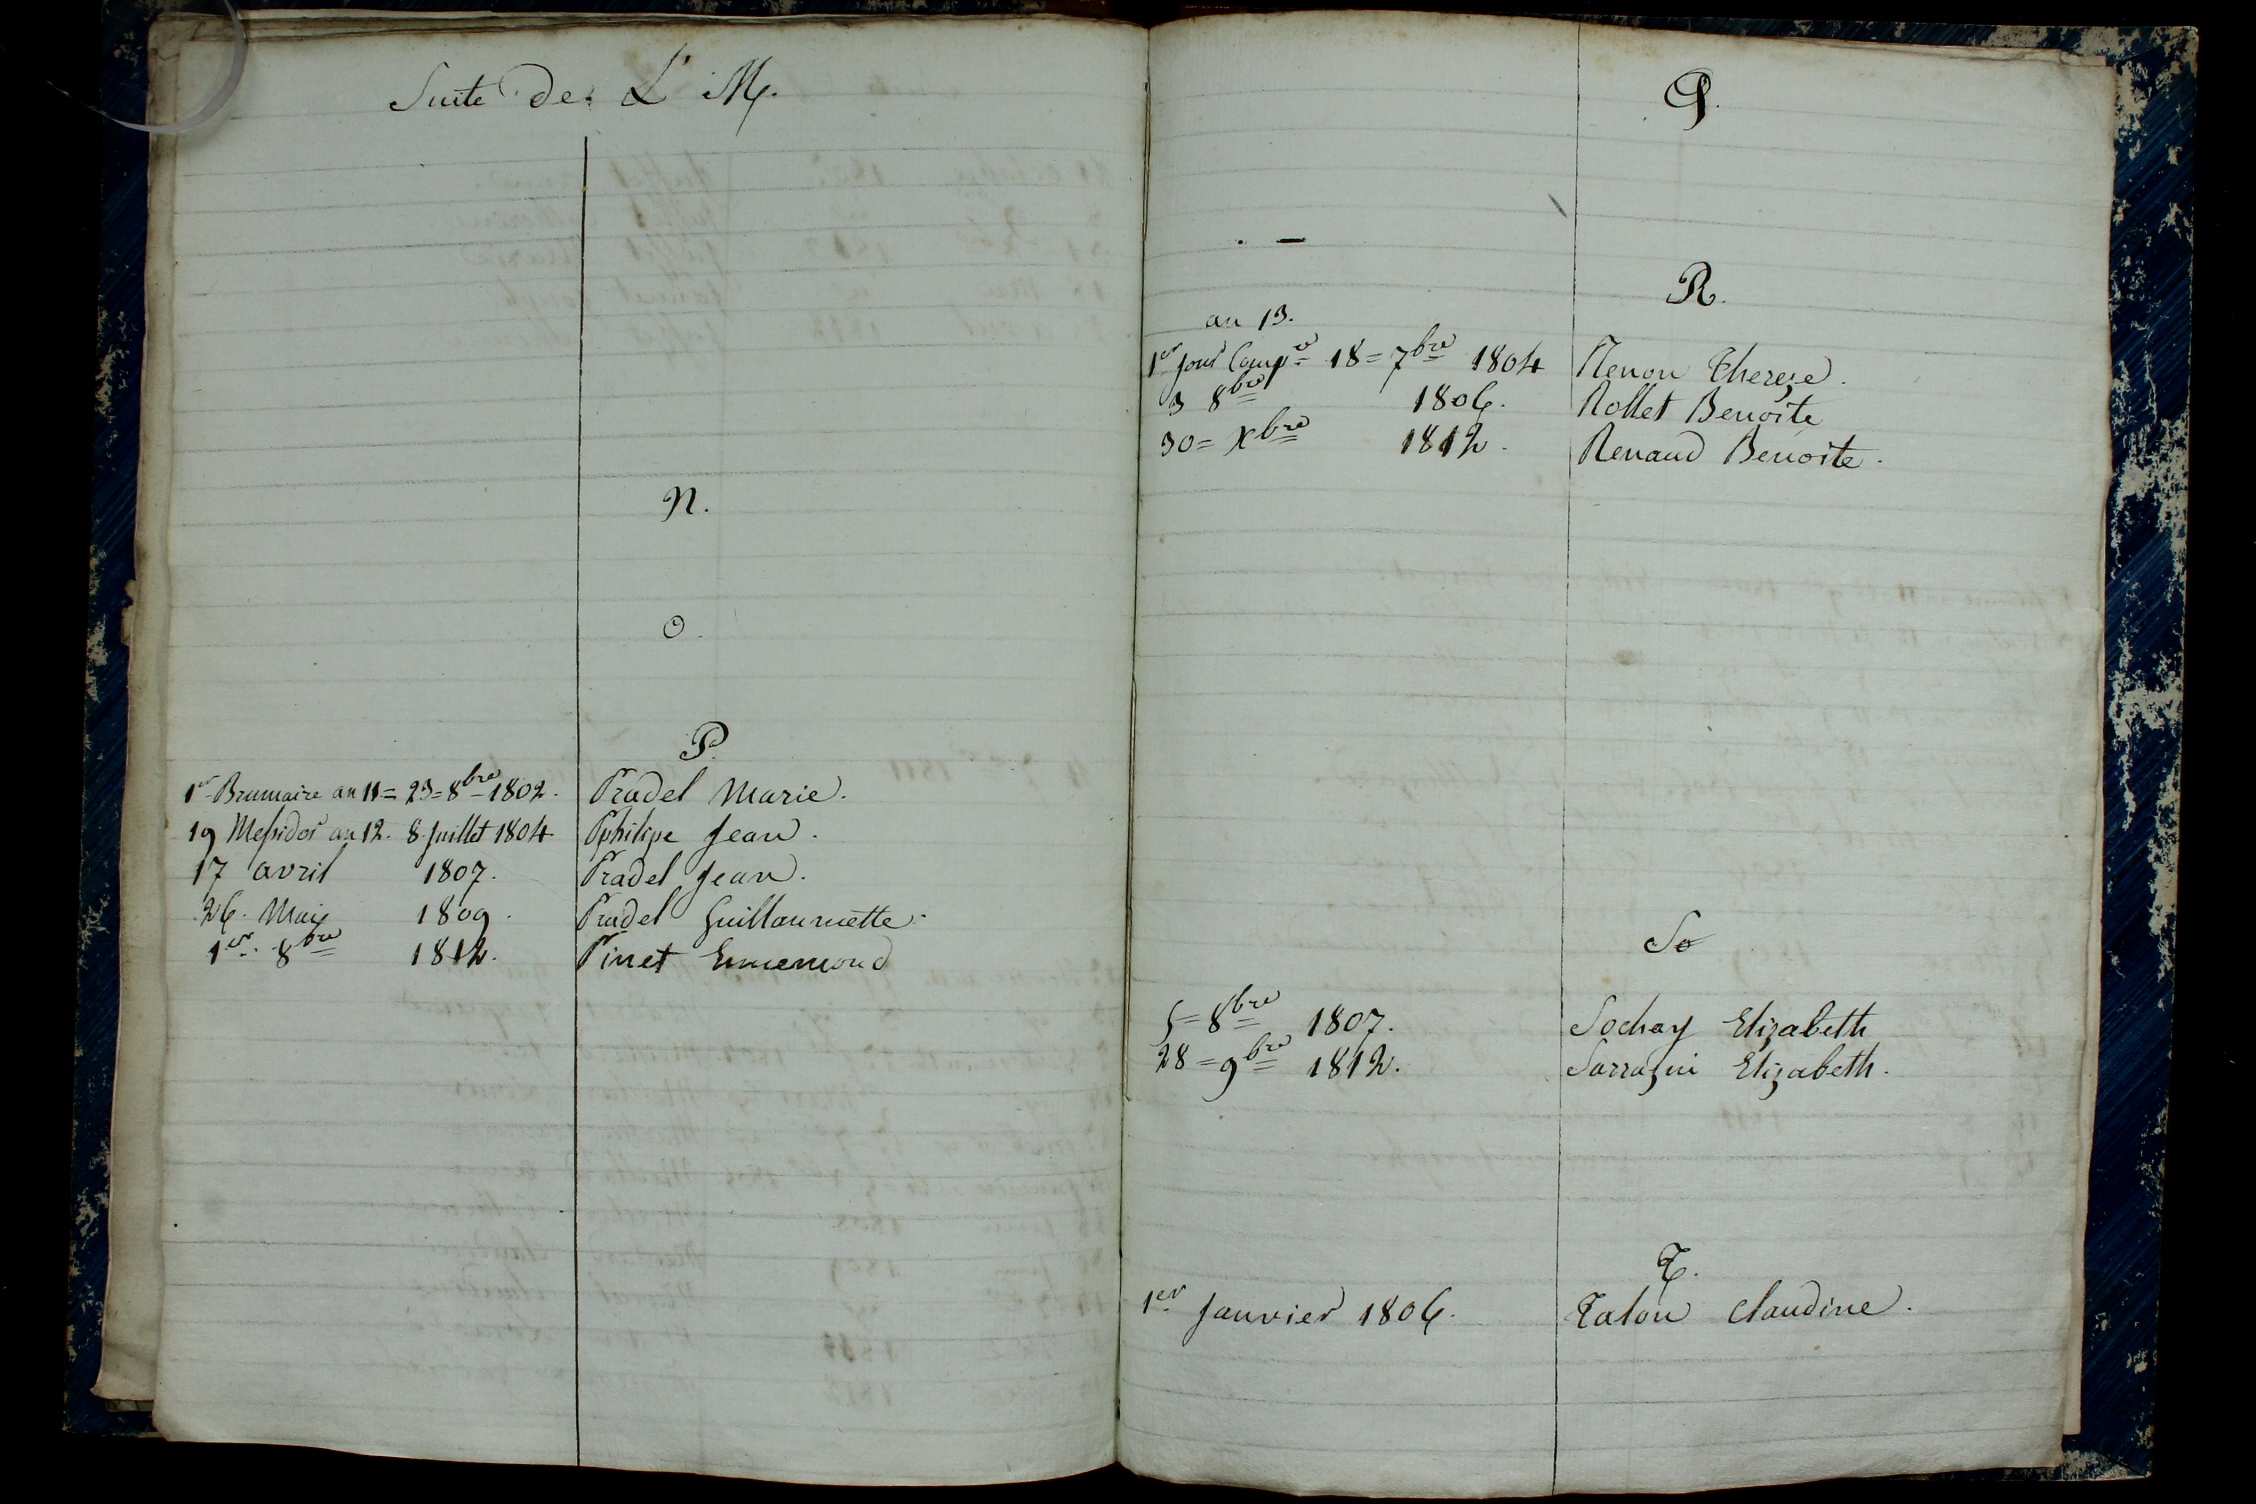 Suite de L' M.
N.
O.
P.
1er Brumaire an 11 = 23 = 8bre 1802. Pradel Marie.
19 Messidor an 12. 8 Juillet 1804 Pphilipe Jean.
17 avril 1807. Pradel Jean.
26. Mai 1809. Pradel Guillaumette.
1er 8bre 1812. Pinet Ennemond
Q.
R.
an 13.
1er Jour Compre 18 = 7bre 1804 Renon Thereze.
3 8bre 1806. Rollet Benoite
30 = Xbre 1812. Renaud Benoite.
S
5 = 8bre 1807. Sochay Elizabeth
28 = 9bre 1812. Sarrazin Elizabeth.
T.
1er Janvier 1806. Talon Claudine.